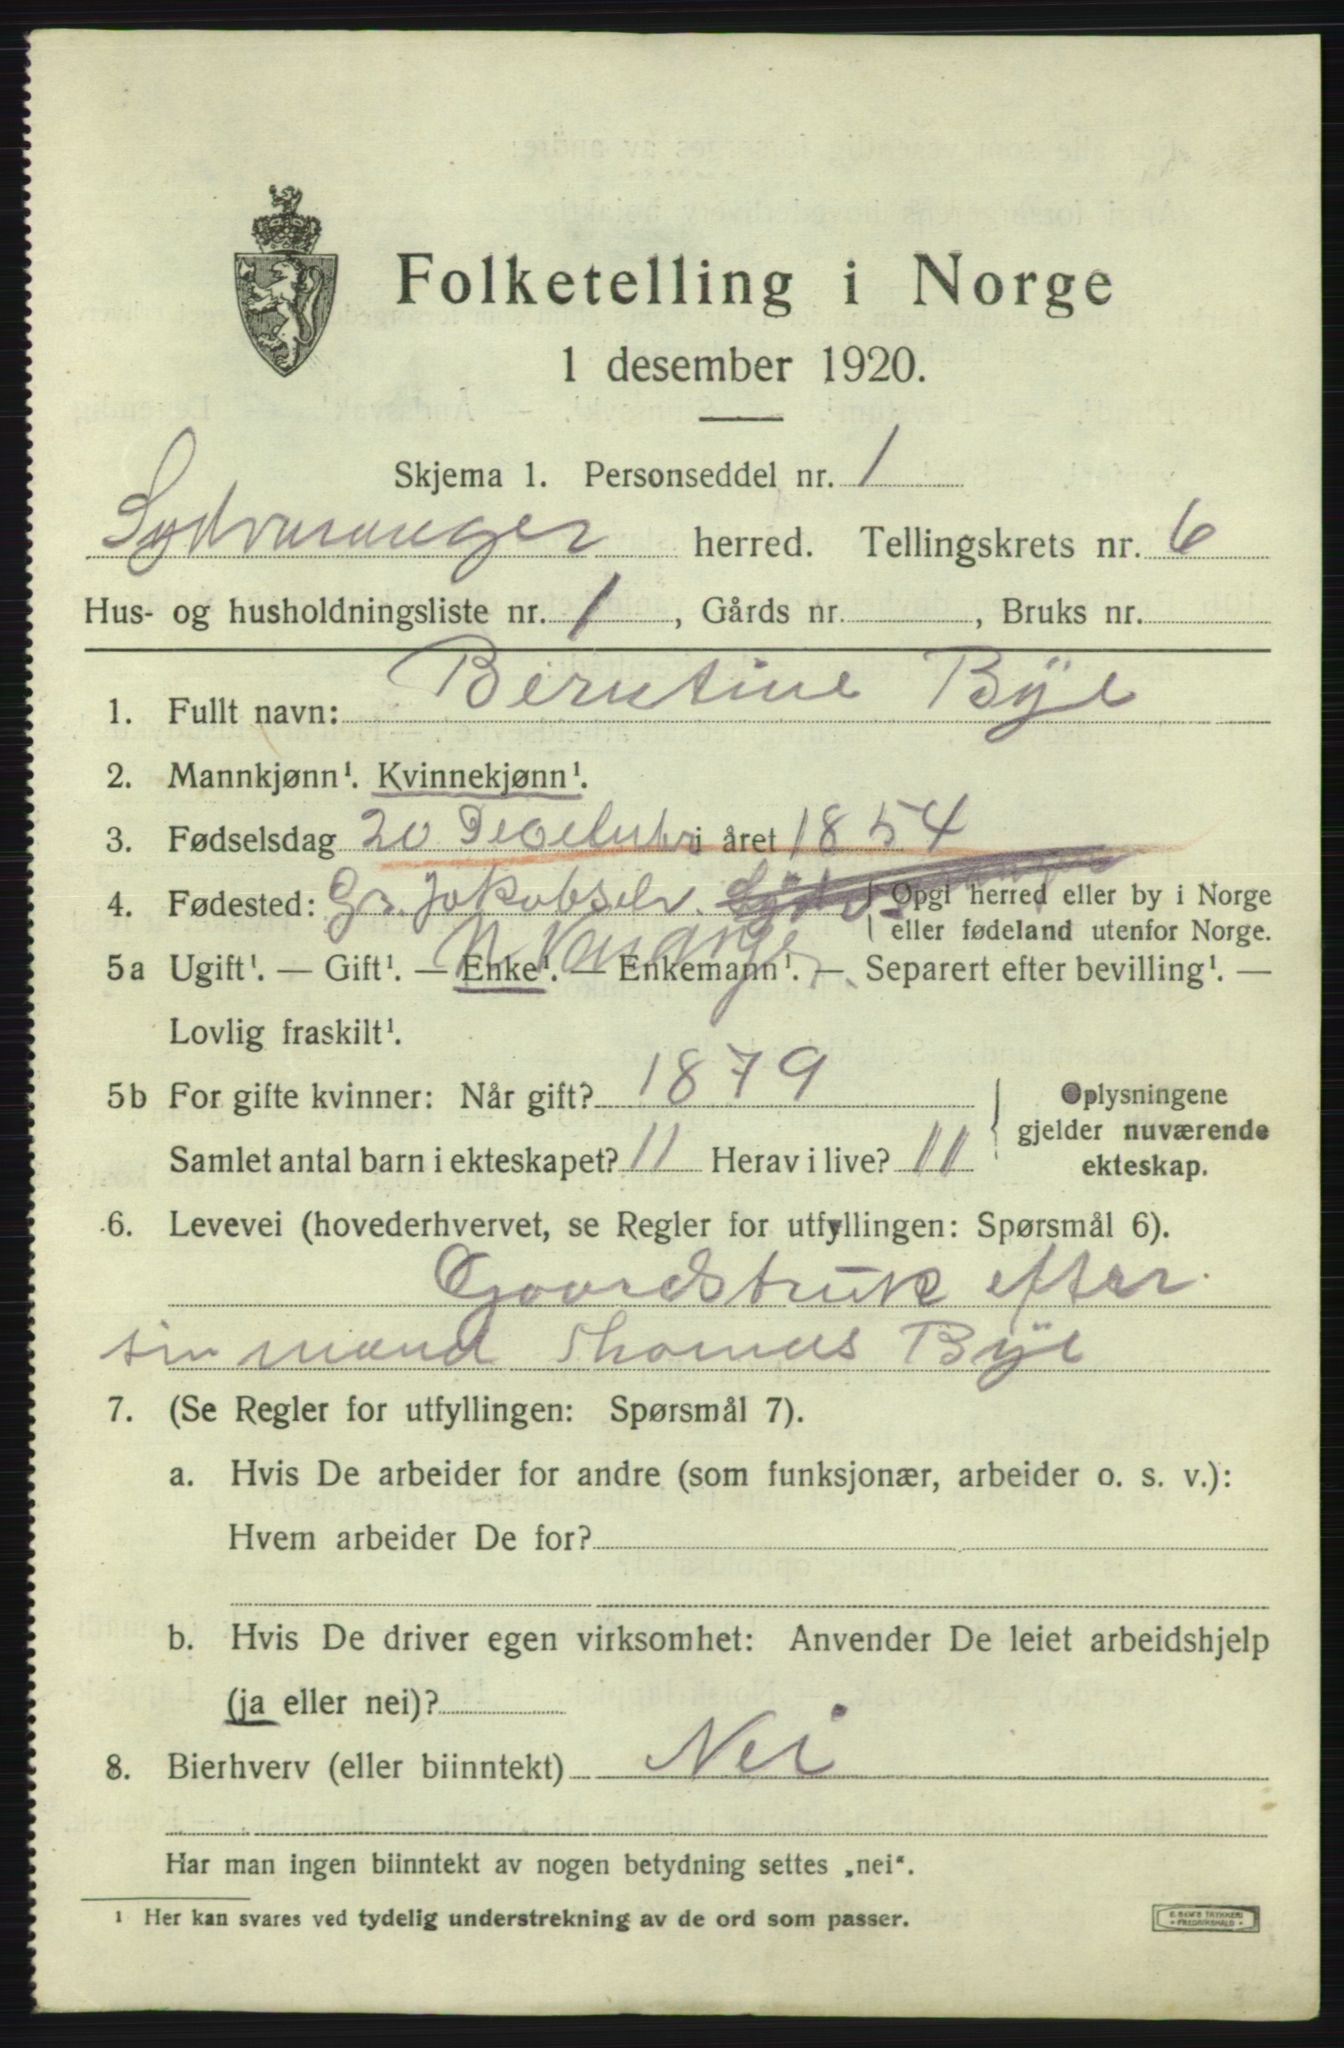 Folketelling i Norge
1 desember 1920.
Skjema 1. Personseddel nr. 1
Sydvaranger herred. Tellingskrets nr. 6
Hus- og husholdningsliste nr. 1, Gårds nr. , Bruks nr.
1. Fullt navn: Berntine Bÿe
2. Mannkjønn¹. Kvinnekjønn¹.
3. Fødselsdag 20 Decelnber i året 1854
4. Fødested: Gr. Jakobselv. Opgi herred eller by i Norge
eller fødeland utenfor Norge.
N. Varanger.
5a Ugift¹. — Gift¹. — Enke¹. — Enkemann¹. — Separert efter bevilling¹. —
Lovlig fraskilt¹.
5b For gifte kvinner: Når gift? 1879
Samlet antal barn i ekteskapet? 11 Herav i live? 11
Oplysningene
gjelder nuværende
ekteskap.
6. Levevei (hovederhvervet, se Regler for utfyllingen: Spørsmål 6).
Gaardsbruk efter
sin mand Thomas Bÿe
7. (Se Regler for utfyllingen: Spørsmål 7).
a. Hvis De arbeider for andre (som funksjonær, arbeider o. s. v.):
Hvem arbeider De for?
b. Hvis De driver egen virksomhet: Anvender De leiet arbeidshjelp
(ja eller nei)?
8. Bierhverv (eller biinntekt) Nei
Har man ingen biinntekt av nogen betydning settes „nei“.
¹ Her kan svares ved tydelig understrekning av de ord som passer.